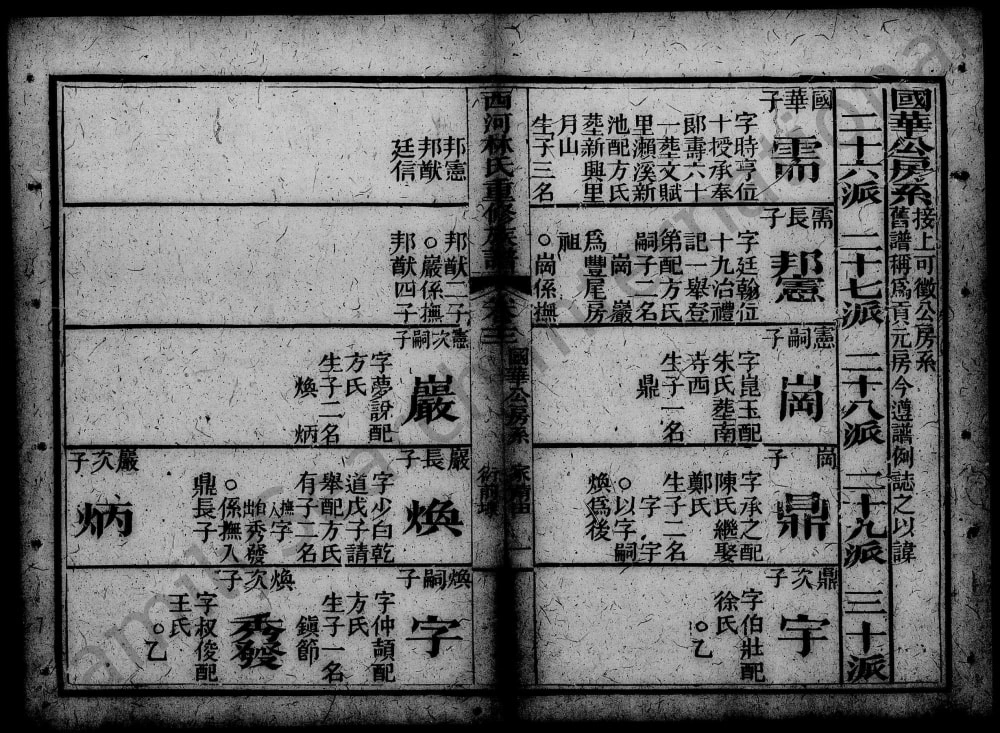 國華公房系
接上可徵公房系
舊譜稱爲貢元房今遵譜例誌之以諱
二十六派
二十七派
二十八派
二十九派
三十派
國華子
需
字時亨位
十授承奉
郎壽六十
一塟文賦
里瀨溪新
池配方氏
塟新興里
月山
生子三名
邦憲
邦猷
廷信
需長子
邦憲
字廷翰位
十九治禮
記一舉登
第配方氏
嗣子二名
崗 巖
爲豐尾房
祖
○崗係撫
邦猷二子
○巖係撫
邦猷四子
憲嗣子
崗
字崑玉配
朱氏塟南
寺西
生子一名
鼎
憲次嗣子
巖
字夢說配
方氏
生子二名
煥 炳
崗子
鼎
字承之配
陳氏繼娶
鄭氏
生子二名
字 宇
○以字嗣
煥爲後
巖長子
煥
字少白乾
道戊子請
舉配方氏
有子二名
撫入字
自出秀發
○係撫入
鼎長子
巖次子
炳
鼎次子
宇
字伯壯配
徐氏
○乙
煥嗣子
字
字仲頡配
方氏
生子一名
鎮節
煥次子
秀發
字叔俊配
王氏
○乙
西河林氏重修族譜
卷之三
國華公房系